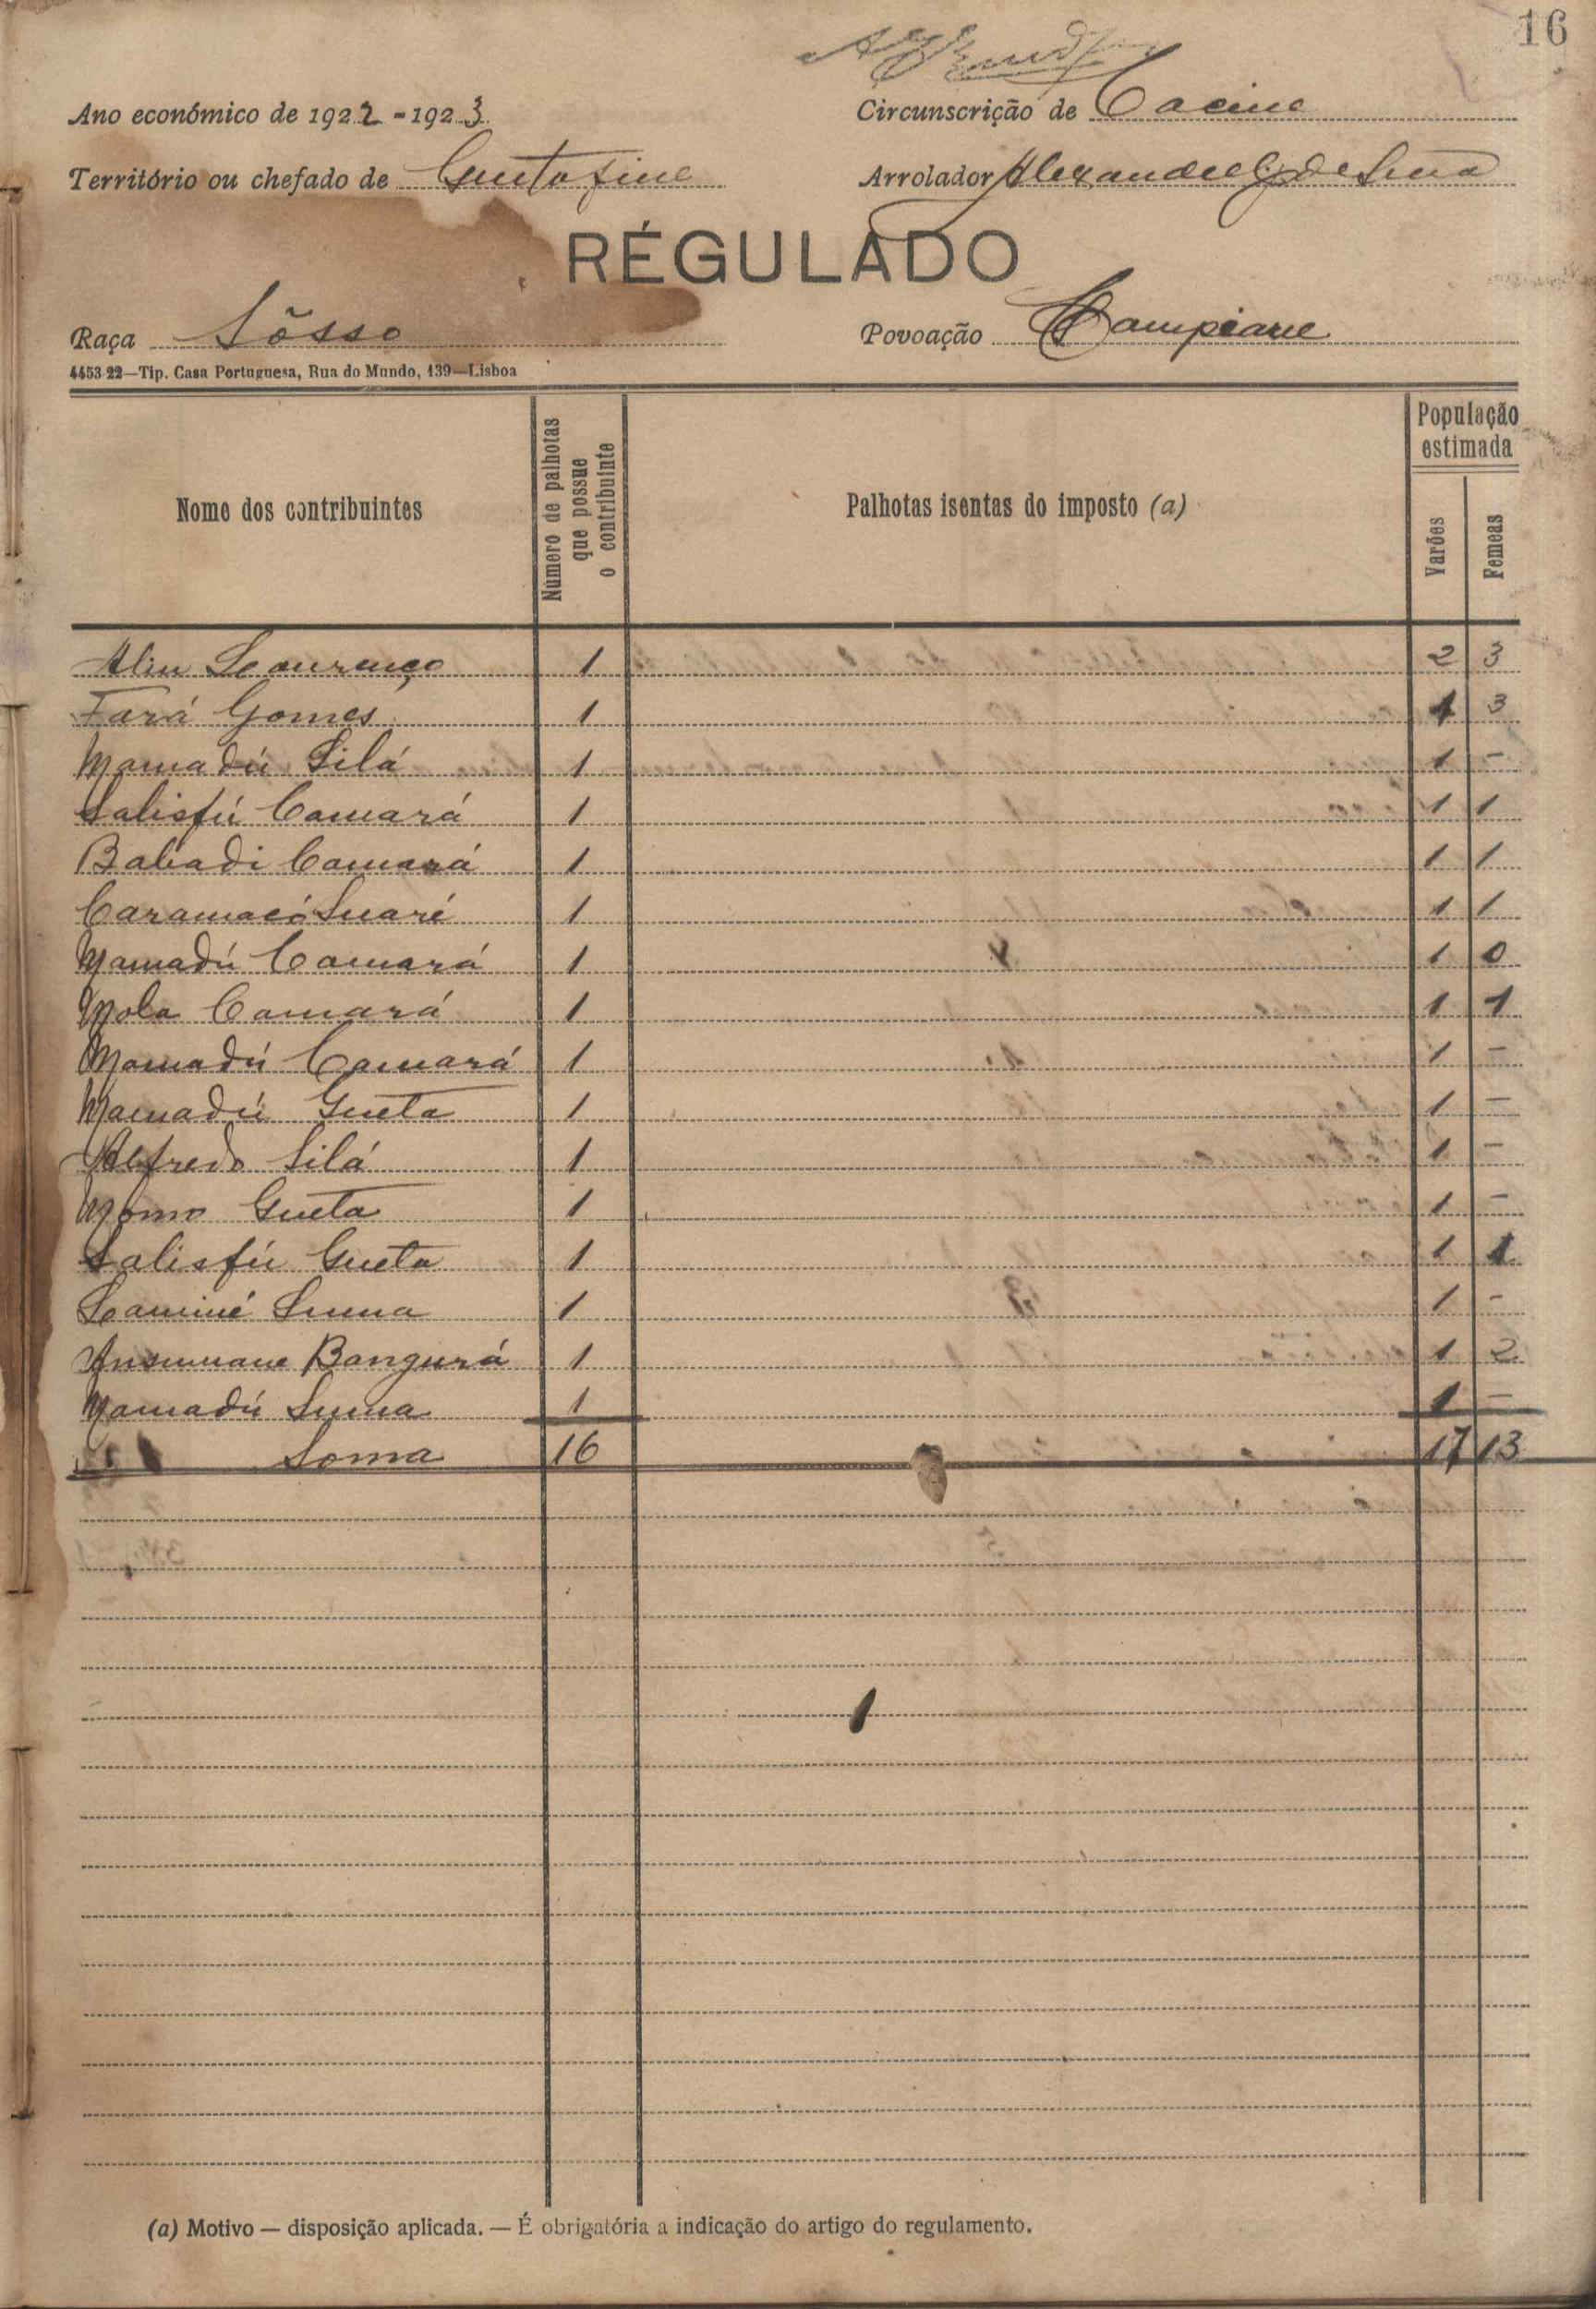 16
Ano económico de 1922-1923 Circunscrição de Cacine
Território ou chefado de Guitafine Arrolador Alexandre G. de Sena
RÉGULADO
Raça Sôsso Povoação Campiane
4453-22—Tip. Casa Portuguesa, Rua do Mundo, 139—Lisboa
Nome dos contribuintes Número de palhotas que possue o contribuinte Palhotas isentas do imposto (a) População estimada Varões Femeas
Aliu Lourenço 1 2 3
Fará Gomes 1 1 3
Mamadú Silá 1 1 -
Salisfú Camará 1 1 1
Babadi Camará 1 1 1
Caramacó Suaré 1 1 1
Mamadú Camará 1 1 0
Mola Camará 1 1 1
Mamadú Camará 1 1 -
Mamadú Gueta 1 1 -
Alfredo Silá 1 1 -
Momo Gueta 1 1 -
Salisfú Gueta 1 1 1
Laminé Suma 1 1 -
Ansumane Bangurá 1 1 2
Mamadú Suma 1 1 -
Soma 16 17 13
(a) Motivo — disposição aplicada. — É obrigatória a indicação do artigo do regulamento.